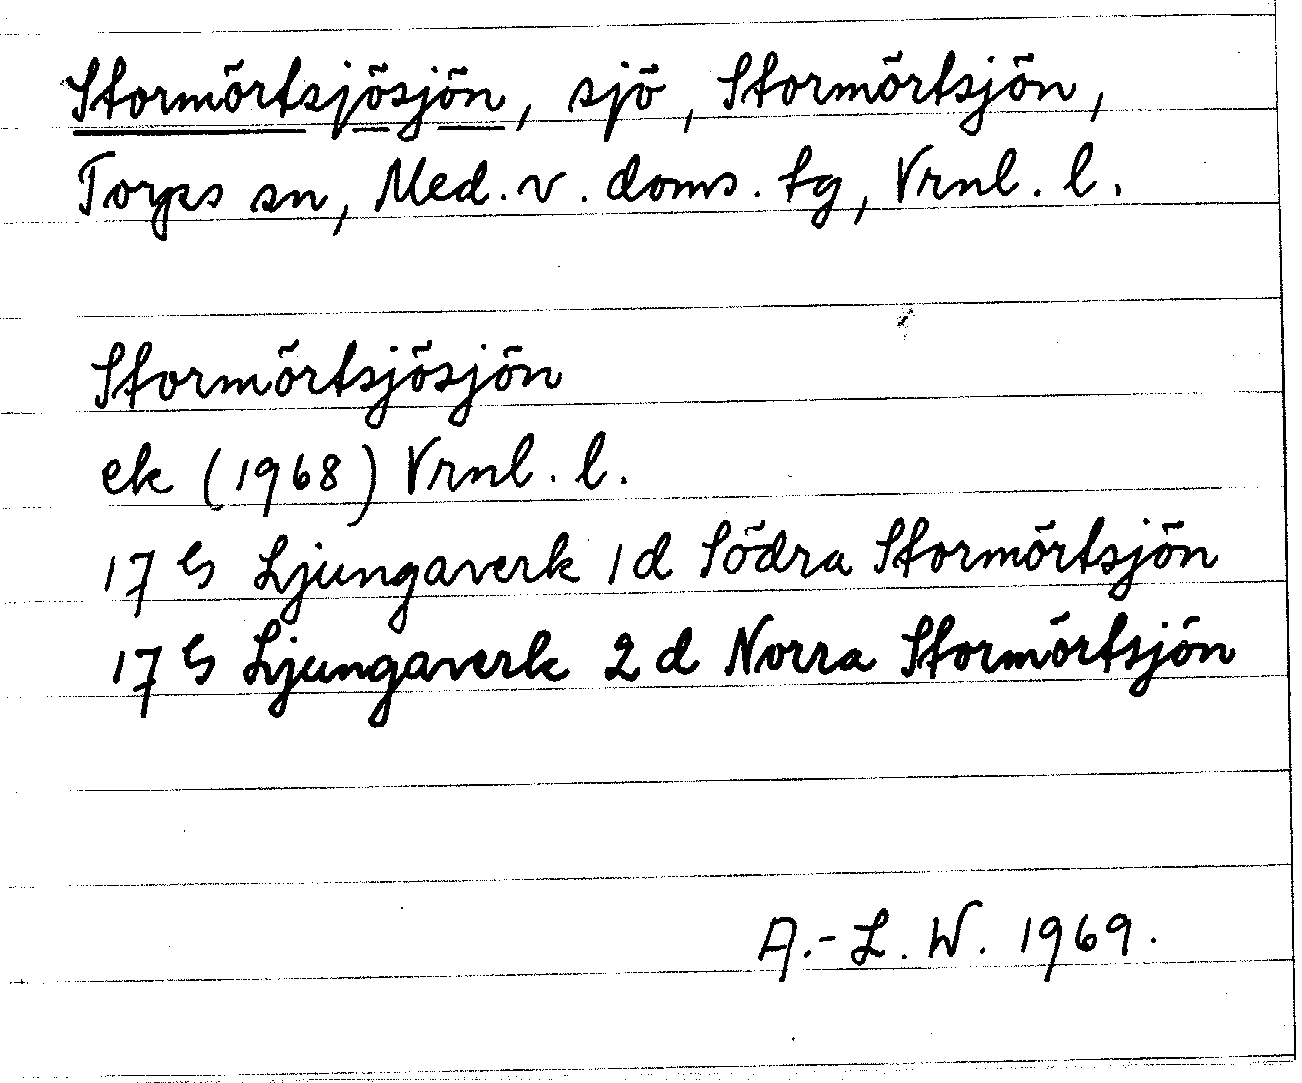 Stormörtsjösjön, sjö, Stormörtsjön,
Torps sn, Med. v. doms. tg, Vrnl. l.
Stormörtsjösjön
ek (1968) Vrnl. l.
17 G Ljungaverk 1d Södra Stormörtsjön
17 G Ljungaverk 2d Norra Stormörtsjön
A.-L. W. 1969.